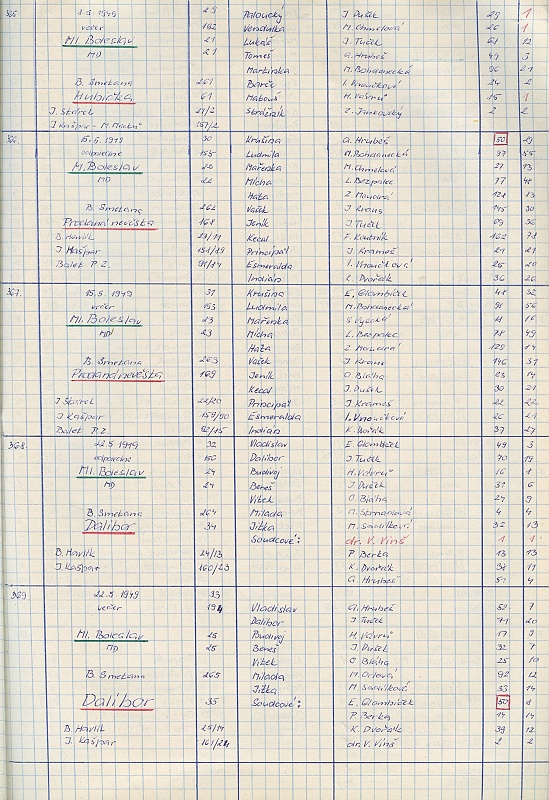 365. 1.5.1949 29 Paloucký J. Dušek 29 1
večer 152 Vendulka M. Chmelová 26 1
Ml. Boleslav 21 Lukáš J. Tuček 61 12
MD 21 Tomeš G. Hrubeš 49 3
Martinka M. Bohdanecká 96 21
B. Smetana 261 Barče I. Vnoučková 24 2
Hubička 61 Matouš H. Vávrů 15 1
J. Škárel 21/2 Strážník Z. Jankovský 2 2
J. Kašpar - M. Macků 157/2
366. 15.5.1949 30 Krušina G. Hrubeš 50 29
odpoledne 155 Ludmila M. Bohdanecká 97 55
Ml. Boleslav 22 Mařenka M. Chmelová 27 13
MD 22 Mícha L. Bezpalec 77 48
Háta Z. Mourová 128 13
B. Smetana 262 Vašek J. Kraus 145 30
Prodaná nevěsta 168 Jeník J. Tuček 69 36
B. Havlík 23/11 Kecal F. Koutník 162 78
J. Kašpar 158/79 Principál J. Krameš 21 21
Balet P.Z. 91/14 Esmeralda I. Vnoučková 25 20
Indián K. Dvořák 36 20
367. 15.5.1949 31 Krušina E. Glombíček 48 32
večer 153 Ludmila M. Bohdanecká 98 56
Ml. Boleslav 23 Mařenka S. Vysoká 18 16
MD 23 Mícha L. Bezpalec 78 49
Háta Z. Mourová 129 14
B. Smetana 263 Vašek J. Kraus 146 31
Prodaná nevěsta 169 Jeník O. Bláha 23 14
Kecal J. Dušek 30 21
J. Škárel 22/20 Principál J. Krameš 22 22
J. Kašpar 159/80 Esmeralda I. Vnoučková 26 21
Balet P.Z. 92/15 Indián K. Dvořák 37 27
368. 22.5.1949 32 Vladislav E. Glombíček 49 3
odpoledne 156 Dalibor J. Tuček 70 19
Ml. Boleslav 24 Budivoj H. Vávrů 16 8
MD 24 Beneš J. Dušek 31 6
Vítek O. Bláha 24 9
B. Smetana 264 Milada M. 4 4
Dalibor 34 Jitka M. Saáilková 32 13
Soudcové: dr. V. Vinš 1 1
B. Havlík 24/13 P. Berka 13 13
J. Kašpar 160/23 K. Dvořák 38 11
G. Hrubeš 51 4
369 22.5.1949 33
večer 194 Vladislav G. Hrubeš 52 7
Dalibor J. Tuček 71 20
Ml. Boleslav 25 Budivoj H. Vávrů 17 9
MD 25 Beneš J. Dušek 32 7
Vítek O. Bláha 25 10
B. Smetana 265 Milada M. Ortová 92 12
Jitka M. Saáilková 33 14
Dalibor 35 Soudcové: E. Glombíček 50 8
P. Berka 14 14
B. Havlík 25/14 K. Dvořák 39 12
J. Kašpar 161/24 dr. V. Vinš 2 2